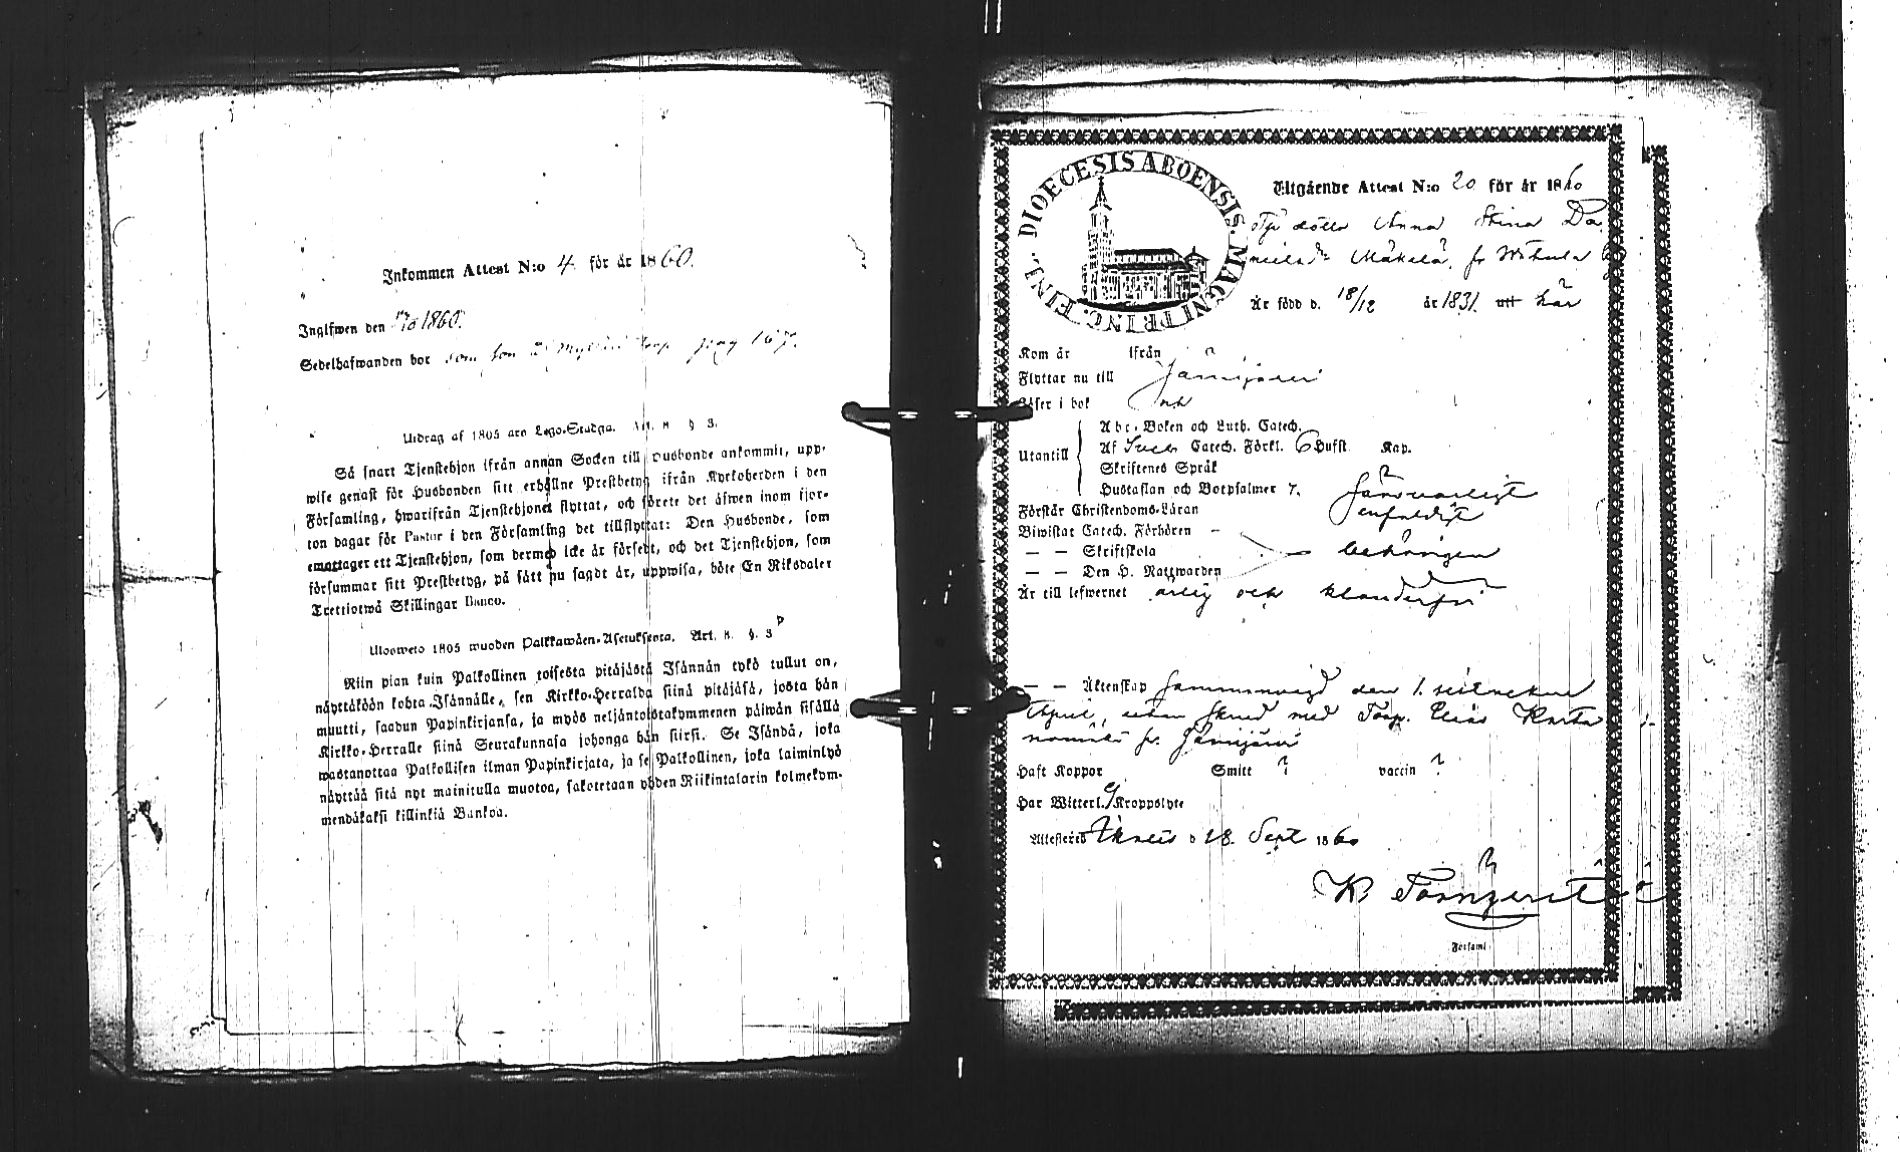 Inkommen Attest N:o 4 för år 1860.
Inglfwen den 1860.
Sedelhafwanden bor som
Utdrag af 1805 års Lego-Stadga. Art. 8 § 3.
Så snart Tjenstehjon ifrån annan Socken till Husbonde ankommit, upp-
wise genast för Husbonden sitt erhållne Prestbetyg ifrån Kyrkoherden i den
Församling, hwarifrån Tjenstehjonet flyttat, och förete det äfwen inom fjor-
ton dagar för Pastor i den Församling det tillflyttat: Den Husbonde, som
emottager ett Tjenstehjon, som dermed icke är försedt, och det Tjenstehjon, som
försummar sitt Prestbetyg, på sätt nu sagdt är, uppwisa, böte En Riksdaler
Trettiotwå Skillingar Banco.
Ulosweto 1805 wuoden Palkkawäen-Asetuksesta. Art. 8. §. 3
Niin pian kuin Palkollinen toisesta pitäjästä Isännän tykö tullut on,
näyttäköön kohta Isännälle, sen Kirkko-Herralda siinä pitäjäsä, josta hän
muutti, saadun Papinkirjansa, ja myös neljäntoistakymmenen päiwän sisällä
Kirkko-Herralle siinä Seurakunnasa johonga hän siirsi. Se Isändä, joka
wastanottaa Palkollisen ilman Papinkirjata, ja se Palkollinen, joka laiminlyö
näyttää sitä nyt mainitulla muotoa, sakotetaan yhden Riikintalarin kolmekym-
mendäkaksi killinkiä Bankoa.
DIOECESIS ABOENSIS. MAGNI PRINC. FINL.
Utgående Attest N:o 20 för år 1860
Anna Stina Da
nielsdr Mäkelä, fr
Är född d. 18/12 år 1831. utt här
Kom år ifrån
Flyttar nu till Jämijärvi
Läser i bok
Utantill
Abc-Boken och Luth. Catech.
Af Sveb. Catech. Förkl. 6 Hufst. Kap.
Skriftenes Språk
Hustaflan och Botpsalmer 7.
Förstår Christendoms-Läran försvarligt enfaldigt
Biwistat Catech. Förhören -
— — Skriftskola — behörigen
— — Den H. Nattwarden
Är till lefwernet ärlig och klanderfri
— — Äktenskap Sammanvigd den 1. sistnekne
April, utan med Torp. Elias Karta
fr. Jämijärvi
Haft Koppor Smitt ? vaccin ?
Har Witterl. Kroppslyte
Attesteras Ikalis d 28. Sept 1860
K
Församl.